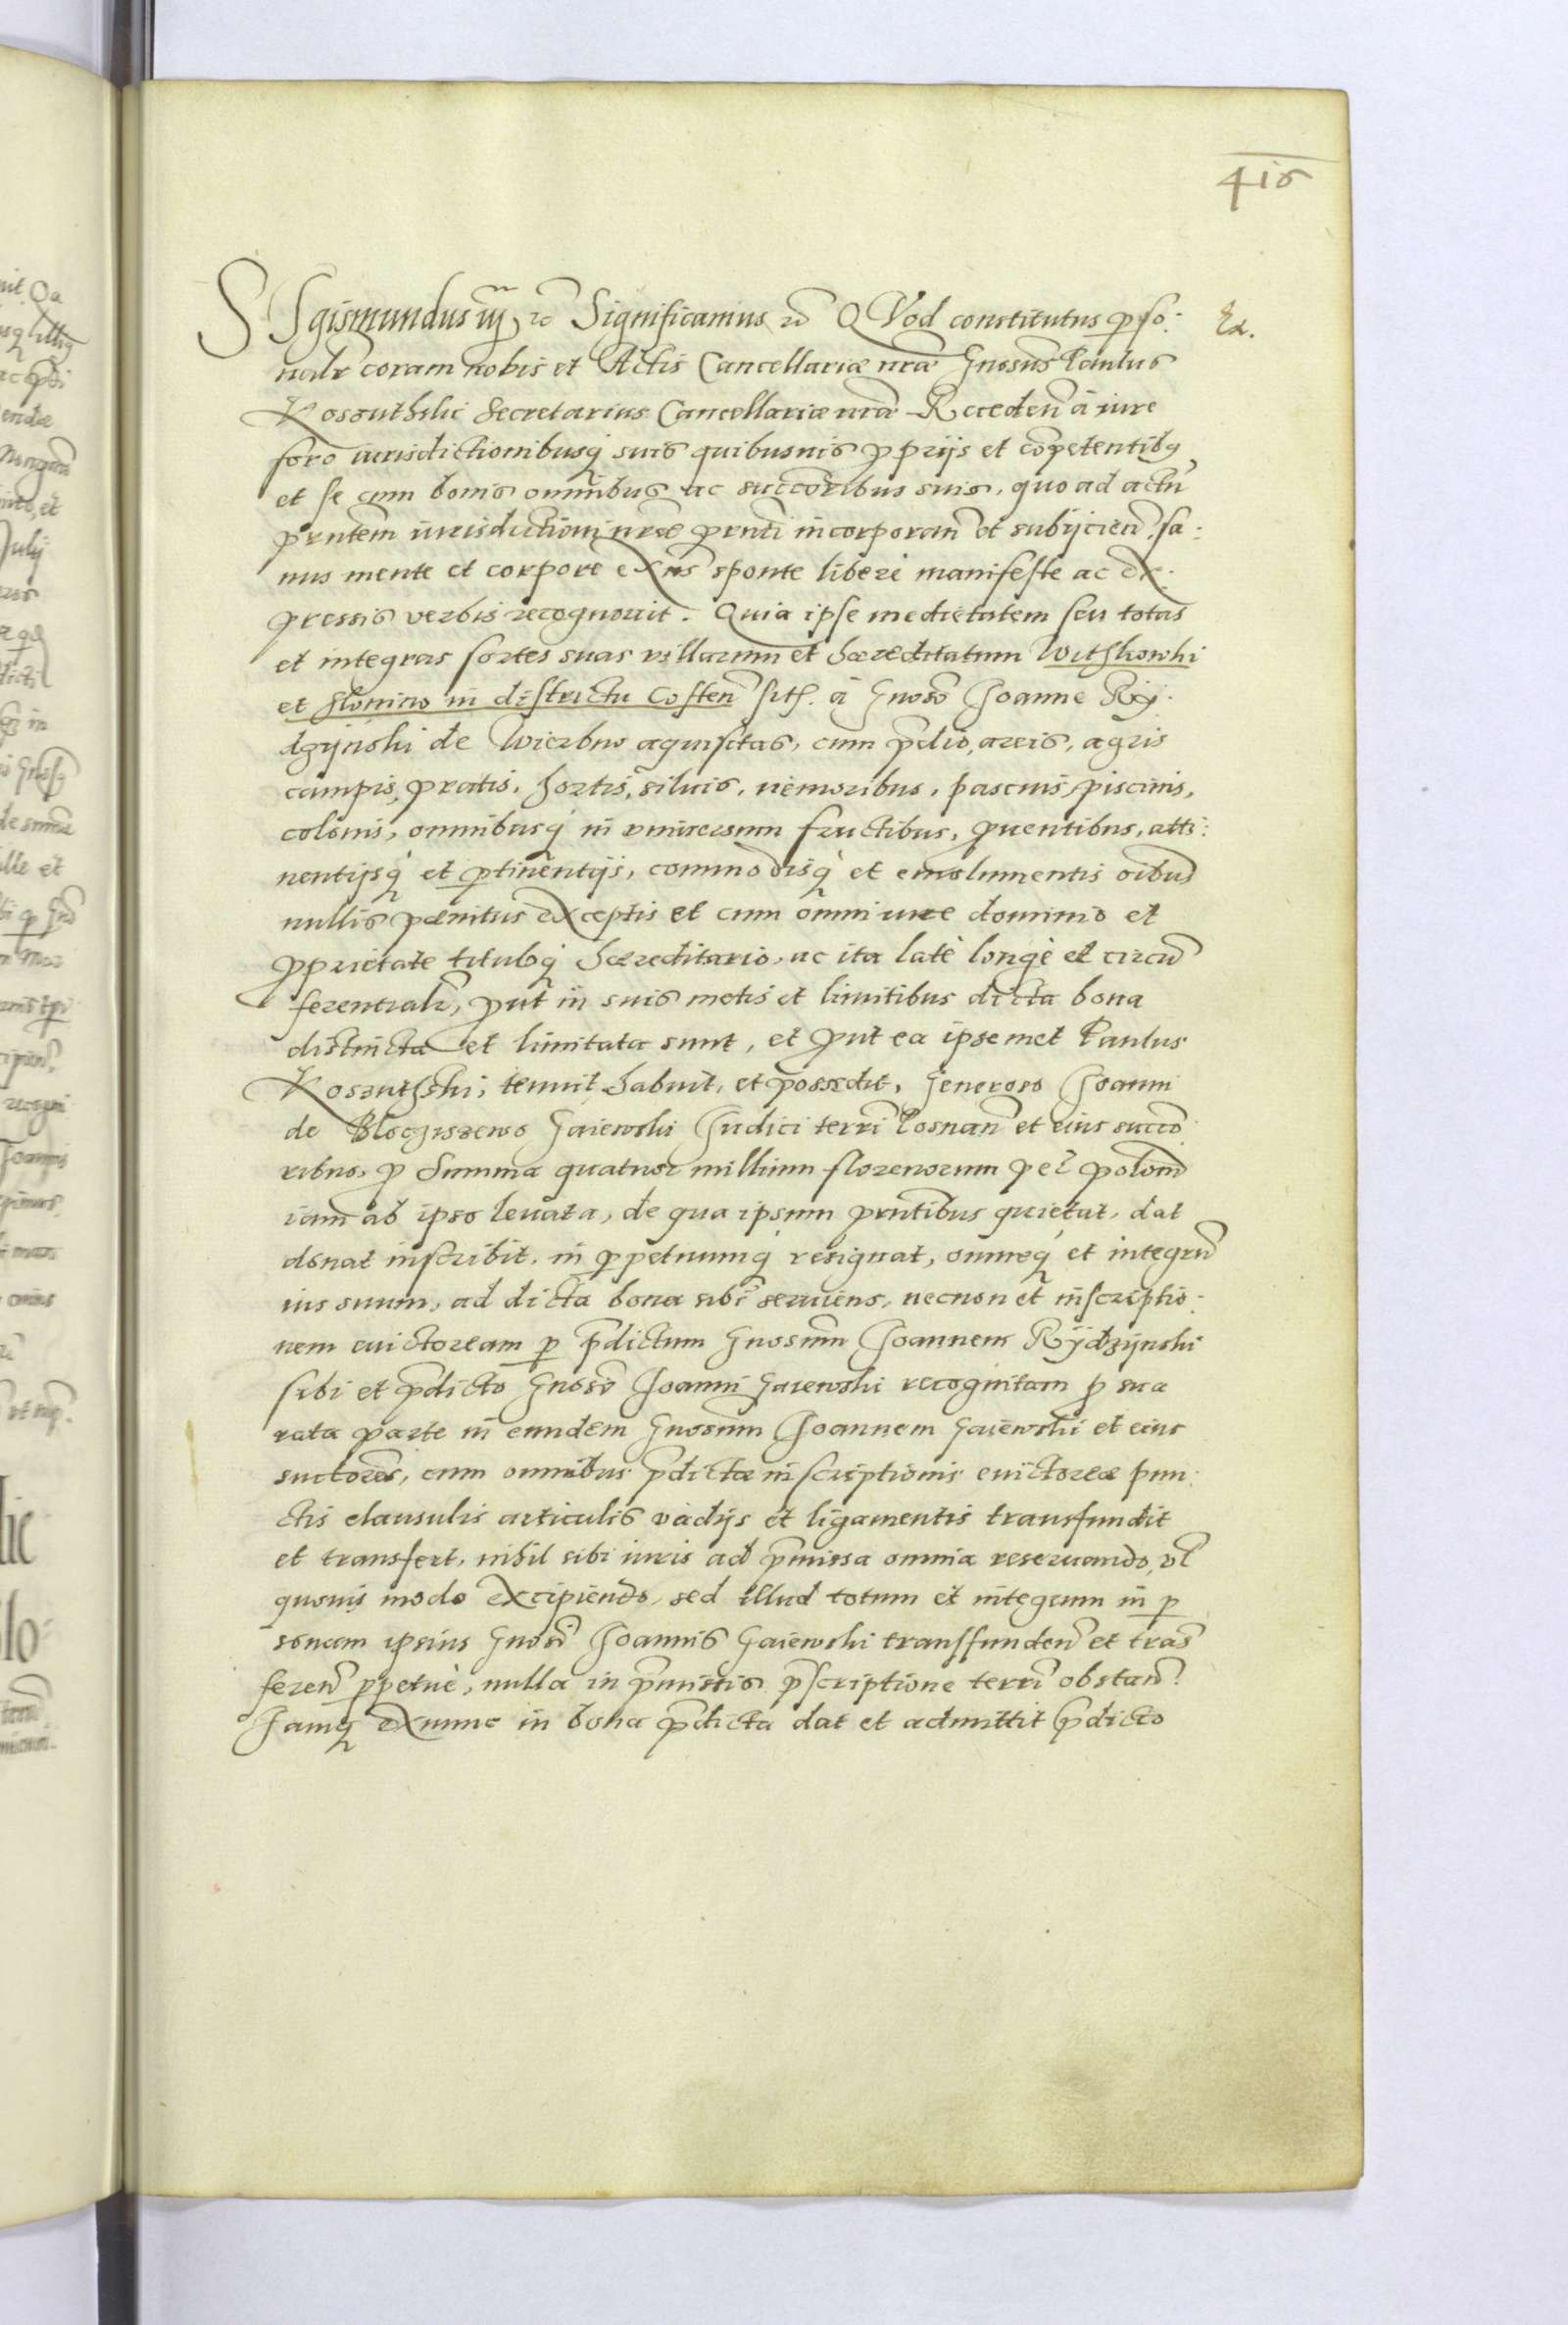 416
Sigismundus iij, etc Significamus etc QVod constitutus p̱so:
Ex.
nalr coram nobis et Actis Cancellariæ nræ Gnosus Paulus
Koszuthski Secretarius Cancellariæ nræ Receden̄ à iure
foro iurisdictionibusq̷ suis quibusuis ꝓprijs et cōpetentibq̷
et se cum bonis omnibus ac succoribus suis, quo ad actū
prntem iurisdictioni nræ prnti incorporan̄ et subijcien̄, sa:
nus mente et corpore exns sponte liberè manifeste ac ex:
pressis verbis recognouit. Quia ipse medietatem seu totas
et integras sortes suas villarum et hæreditatum Withkowki
et Slonino in districtu Costen̄ sit̄. à Gnoso Joanne Rÿ:
dzÿnski de Wierbno aquisitas, cum p̄dio, areis, agris
campis, pratis, hortis, siluis, nemoribus, pascuis, piscinis,
colonis, omnibusq̷ in vniuersum fructibus, ꝓuentibus, atti:
nentijsq̷ et p̱tinentijs, commodisq̷ et emolumentis oibus
nullis pænitus exceptis et cum omni iure dominio et
ꝓprietate tituloq̷ hæreditario, ac ita latè longè et circū
ferentialr, ꝓut in suis metis et limitibus dicta bona
distincta et limitata sunt, et ꝓut ea ipsemet Paulus
Koszuthski, tenuit habuit, et possedit, Generoso Joanni
de Bloczissewo Gaiewski Judici terrī Posnan̄ et eius succo
ribus, ꝓ Summa quatuor millium florenorum pēl polonī
iam ab ipso leuata, de qua ipsum prntibus quietat, dat
donat inscribit, in p̱petuumq̷ resignat, omneq̷ et integrū
ius suum, ad dicta bona sibi seruiens, necnon et inscriptio:
nem euictoream p̱ p̄dictum Gnosum Joannem Rÿdzÿnski
sibi et p̄dicto Gnoso Joanni Gaiewski recognitam ꝓ sua
rata parte in eundem Gnosum Joannem Gaiewski et eius
suctores, cum omnibus p̄dictæ inscriptionis euictoreæ pun:
ctis clausulis articulis vadijs et ligamentis transfundit
et transfert, nihil sibi iuris ad p̄missa omnia reseruando, vl
quouis modo excipiendo, sed illud totum et integrum in p̱
sonam ipsius Gnosi Joannis Gaiewski transfunden̄ et trās
feren̄ p̱petuè, nulla in p̄missis p̄scriptione terrī obstan̄.
Jamq̷ exnunc in bona p̄dicta dat et admittit p̄dicto